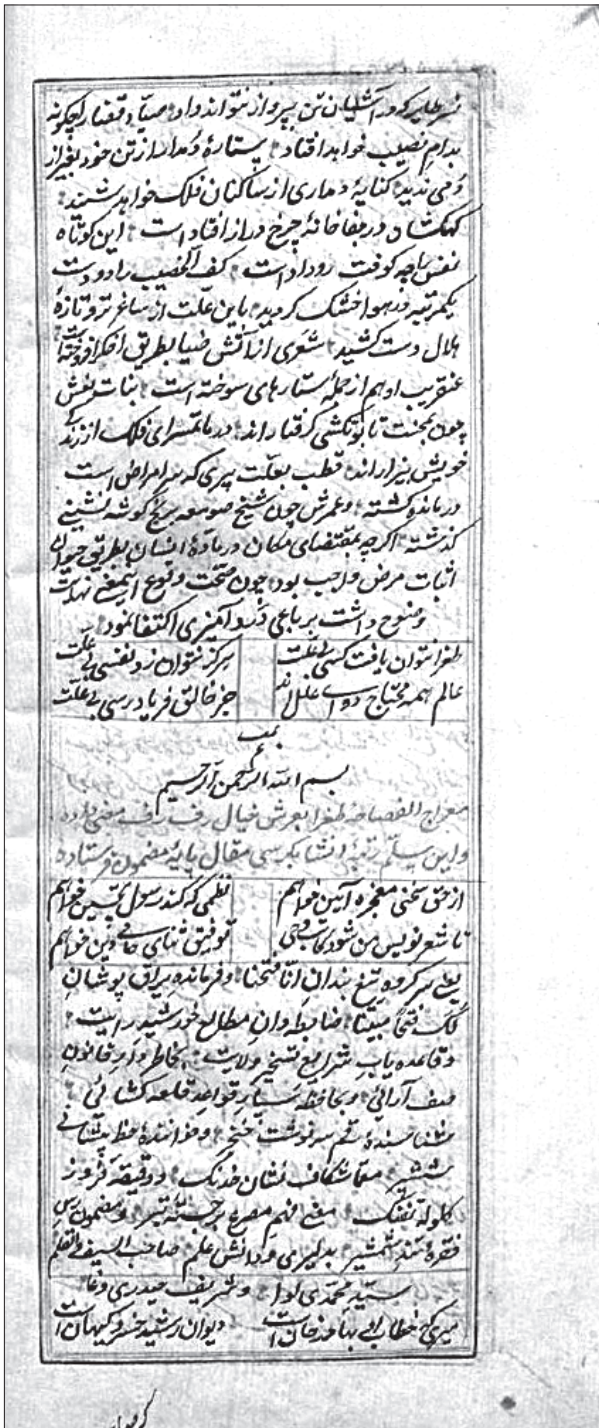 نسر طایر که در آشیان تن پرواز نتواند داد صیاد قضا را چگونه
بدام نصیب خواهد افتاد ستارهٔ دمدار از تن خود بغیر از
دمی ندید کنایهٔ دمداری از ساکنان فلک خواهد شنید
کهکشان در شفاخانهٔ چرخ دراز افتاد است این کوتاه
نفس را چه کوفت روداد است کف الخضیب را دو دست
یکمرتبه در هوا خشک گردید باین علت از ساغر تر و تازهٔ
هلال دست کشید شعری از آتش ضیا بطریق اخگر افروخته است
عنقریب او هم از جمله ستارهای سوخته است بنات نعش
چون بمحنت تابوت‌کشی گرفتاراند در ماتمسرای فلک از زندگی
خویش بیزاراند قطب بعلت پیری که سر امراض است
درمانده گشته و عمرش چون شیخ صومعه بر گوشه نشینی
گذشته اگرچه بمقتضای مکان در مادهٔ انسان بطریق حیوان
اثبات مرض واجب بود چون صحت وقوع این معنی نهایت
وضوح داشت برباعی درد آمیزی اکتفا نمود
طغرا نتوان یافت کسی بی علت هرگز نتوان زد نفسی بی علت
عالم همه محتاج دوای علل اند جز خالق فریادرسی بی علت
بسم الله الرحمن الرحیم
معراج الفصاحه طغرا بعرش خیال رفرف معنی داده
و این سلم رتبهٔ انشا بکرسی مقال پایهٔ مضمون فرستاده
از حق سخنی معجزه آیین خواهم نظمی که کند رسول تحسین خواهم
تا شعر نویس من شود کاتب وحی توفیق ثنای حامی دین خواهم
یعنی سرگروه تیغ بندان انا فتحنا و فرمانده یراق پوشان
لک فتحا مبینا ضابطه دان مطالع خورشید رایت
و قاعده یاب شرایع تسخیر ولایت بخاطر دار قانون
صف آرائی و بحافظه سپار قواعد قلعه کشائی
شناسندهٔ رقم سرنوشت خنجر و خوانندهٔ خط پیشانی
شمشیر معما شکاف نشان خدنگ و دقیقه فروز
گلولهٔ تفنگ معنی فهم مصرع برجستهٔ تیر و مضمون رس
فقرهٔ تند شمشیر بدلیری و دانش علم صاحب السیف و القلم
سید محمدی لوا و شریف حیدری وغا
میری که خطاب او بهادر خان است دیوان رشید خسرو کیهان است